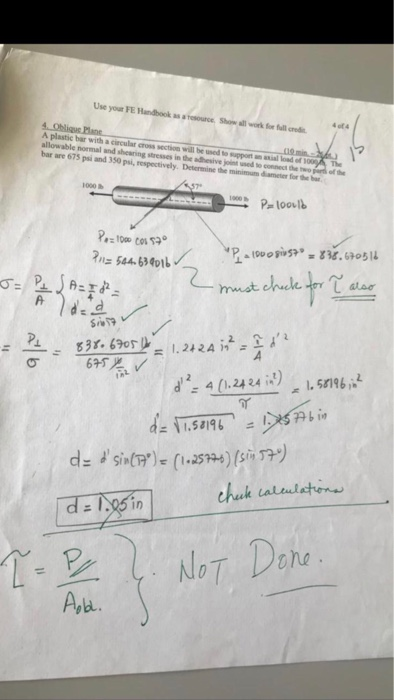 Use your FE Handbook as a resource. Show all work for full credit.
4 of 4
4. Oblique Plane (10 min.
A plastic bar with a circular cross section will be used to support an axial load of 1000 The
allowable normal and shearing stresses in the adhesive joint used to connect the two parts of the
bar are 675 psi and 350 psi, respectively. Determine the minimum diameter for the bar.
57°
1000 lb
1000 lb
P=1000lb
P∥= 1000 cos 57°
P∥= 544.6390lb ✓
P⊥ = 1000 sin 57° = 838.6705 lb
must check for τ also
σ = P⊥/A { A = π/4 d² =
d' = d/sin 57 ✓
= P⊥/σ = 838.6705 lb/675 lb/in² ✓ = 1.2424 in² = π/4 d'²
d'² = 4 (1.2424 in²)/π = 1.58196 in²
d' = √1.58196 = 1.25776 in
d = d' sin(57°) = (1.25776) (sin 57°)
d = 1.05 in
check calculations
τ = P∥/Aobl. } . NOT Done.